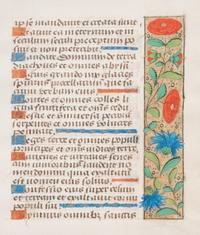 ipse mandauit et creata sunt
Statuit ea in eternum et in
seculum seculi preceptum po
suit et non preteribit
Laudate dominum de terra
dracones et omnes abyssi
Ignis grando nix glacies
spiritus procellarum que faci
unt verbum eius
Montes et omnes colles li
gna fructifera et omnes cedri
Bestie et uniuersa pecora
serpentes et volucres
pennate
Reges terre et omnes populi
principes et omnes iudices terre
Iuuenes et virgines senes
cum iunioribus laudent no
men domini quia exaltatum
est nomen eius solius
Confessio eius super celum
et terram et exaltauit cornu
populi sui
Hymnus omnibus sanctis